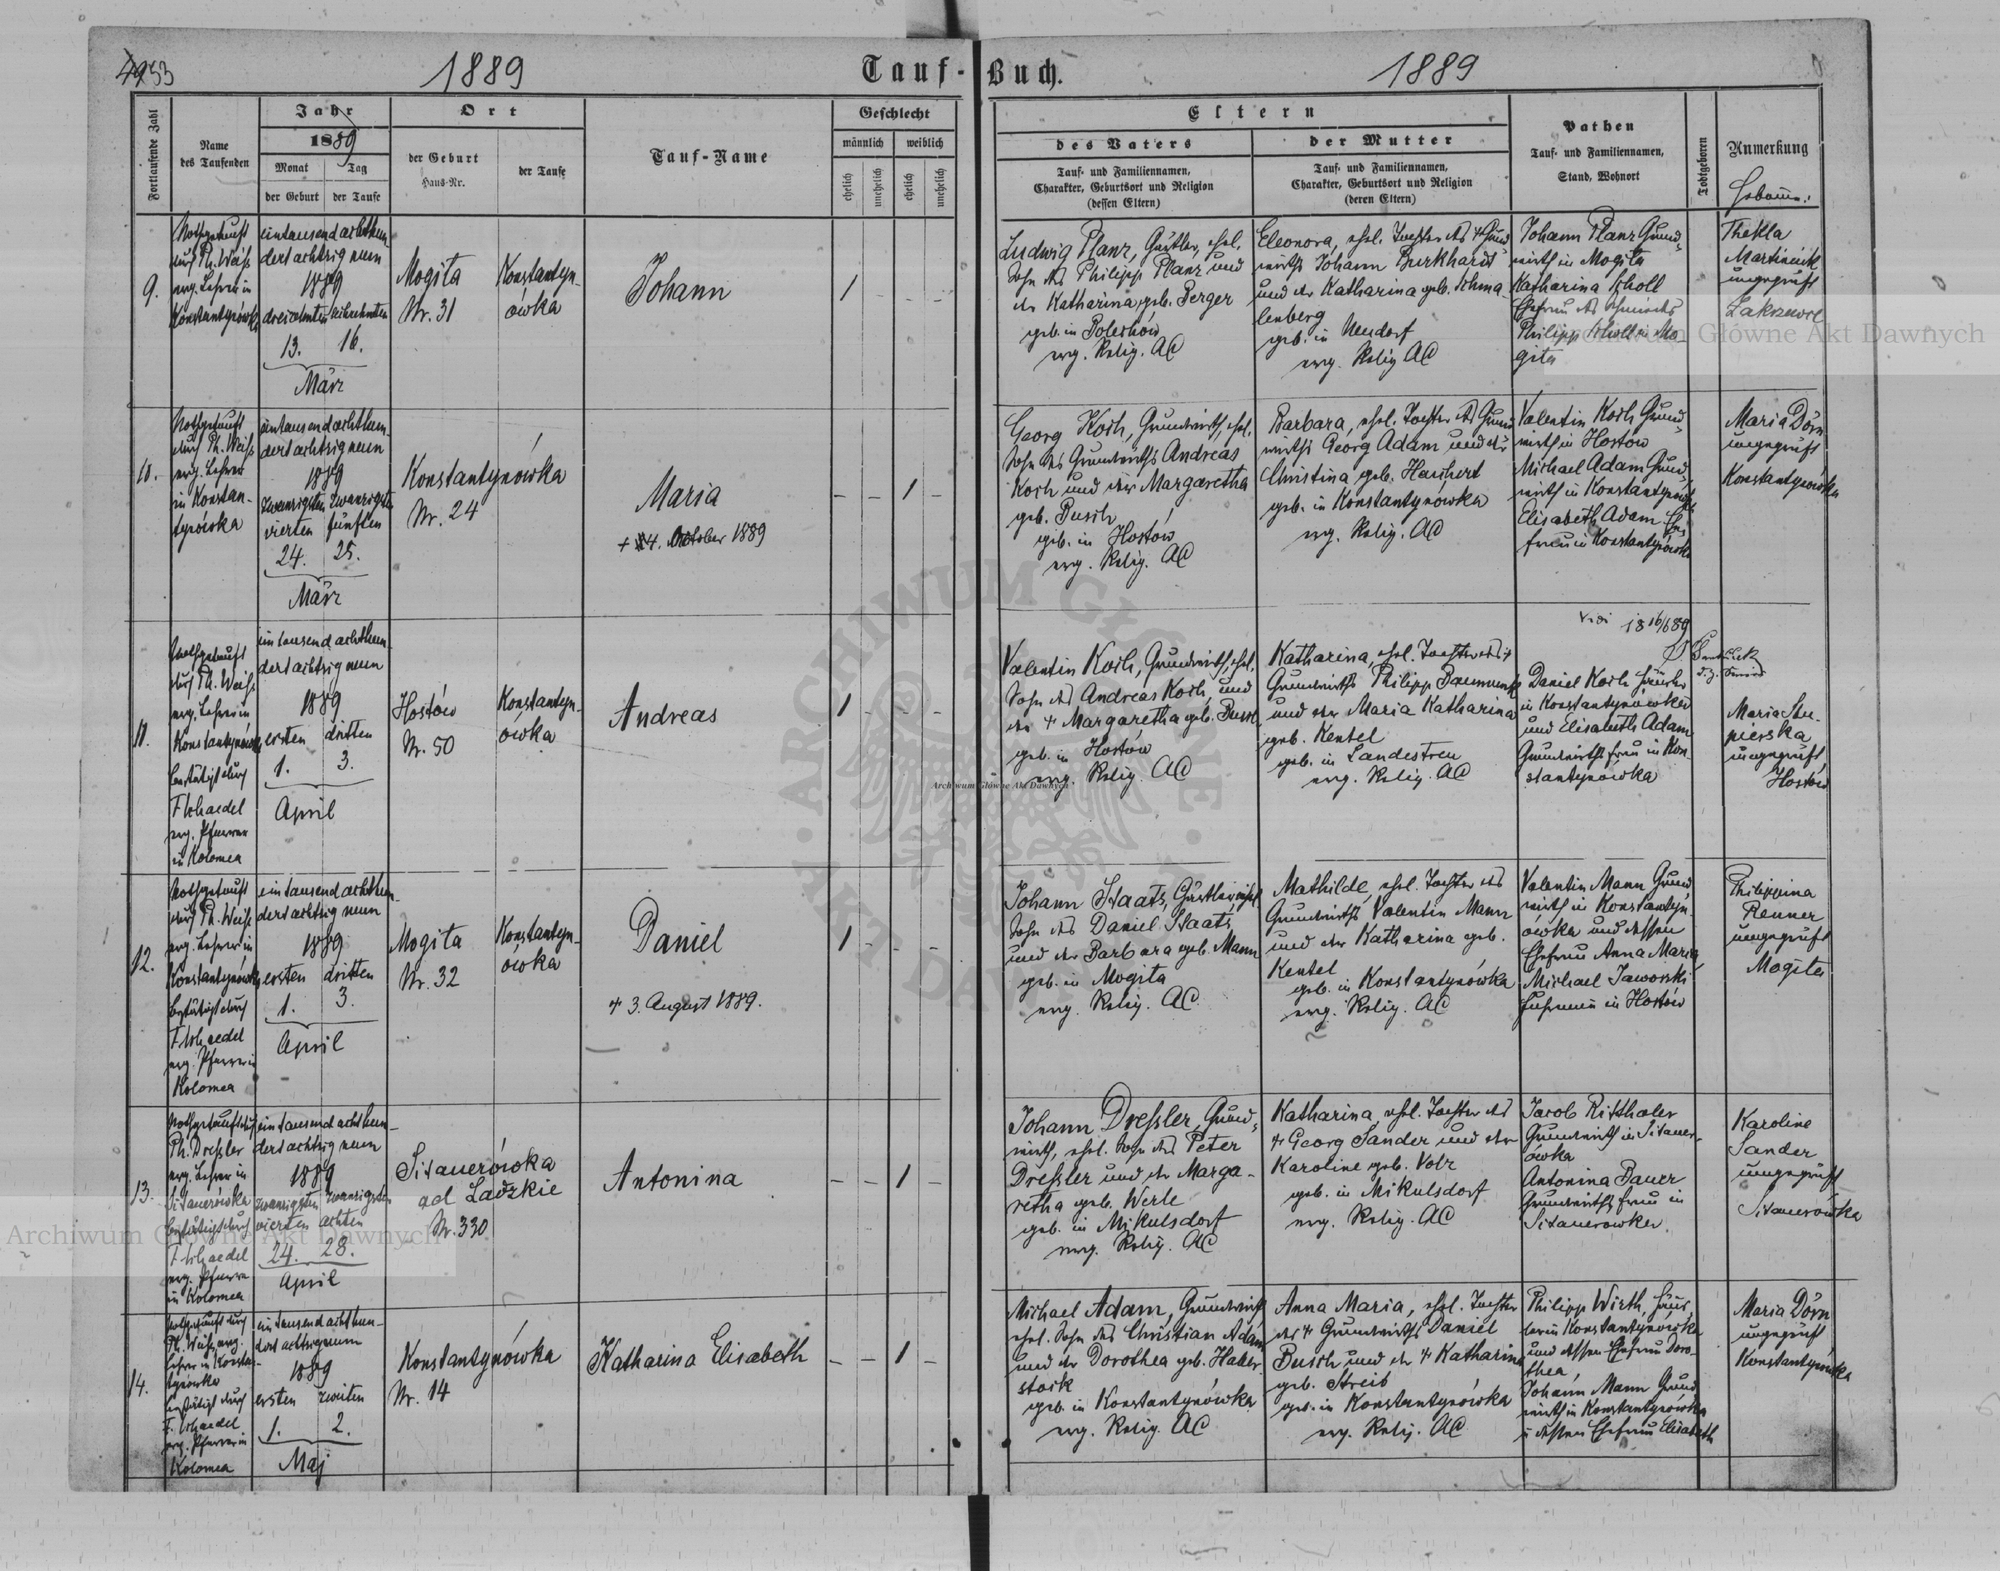 4953
1889
Tauf-Buch.
1889
Fortlaufende Zahl
Name
des Taufenden
Jahr
1889
Monat
Tag
der Geburt
der Taufe
Ort
der Geburt
Haus-Nr.
der Taufe
Tauf-Name
Geschlecht
männlich
weiblich
ehelich
unehelich
ehelich
unehelich
Eltern
des Vaters
Tauf- und Familiennamen,
Charakter, Geburtsort und Religion
(dessen Eltern)
der Mutter
Tauf- und Familiennamen,
Charakter, Geburtsort und Religion
(deren Eltern)
Pathen
Tauf- und Familiennamen,
Stand, Wohnort
Todtgeboren
Anmerkung
9.
Nothgetauft
durch Ph. Weiß
evg. Lehrer in
Konstantynówka
eintausend achthun-
dert achtzig neun
1889
dreizehnten
13.
16.
März
Mogila
Nr. 31
Konstantyn-
ówka
Johann
1
Ludwig Planz, Gärtler, ehel.
Sohn des Philipp Planz und
der Katharina, geb. Berger
geb. in Bolechów
evg. Relig. AC
Eleonora, ehel. Tochter des + Grund-
wirths Johann Burkhardt
und der Katharina geb. Schma-
lenberg
geb. in Neudorf
evg. Relig AC
Johann Planz Grund-
wirth in Mogila
Katharina Scholl
Ehefrau des Schmiedes
Philipp Scholl in Mo
gila
Thekla
Martiniuk
ungeprüft
10.
Nothgetauft
durch Ph. Weiß
evg. Lehrer
in Konstan-
tynówka
eintausend achthun-
dert achtzig neun
1889
zwanzigsten zwanzigsten
vierten fünften
24. 25.
März
Konstantynówka
Nr. 24
Maria
+ 14. October 1889
1
Georg Koch, Grundwirth, ehel.
Sohn des Grundwirths Andreas
Koch und der Margaretha
geb. Busch
geb. in Hostów
evg. Relig. AC
Barbara, ehel. Tochter des Grund-
wirths Georg Adam und der
Christina geb. Haubert
geb. in Konstantynówka
evg. Relig. AC
Valentin Koch Grund-
wirth in Hostow
Michael Adam Grund-
wirth in Konstantynówk
Elisabeth Adam Ehe-
frau in Konstantynówka
Maria Dörn
ungeprüft
Konstantynówka
vidi 18 16/6 89
11.
Nothgetauft
durch Ph. Weiß
evg. Lehrer in
Konstantynówka
bestätigt durch
F. Schaedel
evg. Pfarrer
in Kolomea
eintausend achthun-
dert achtzig neun
1889
ersten dritten
1. 3.
April
Hostów
Nr. 50
Konstantyn-
ówka
Andreas
1
Valentin Koch, Grundwirth, ehel.
Sohn des Andreas Koch und
der + Margaretha geb. Busch
geb. in Hostów
evg. Relig. AC
Katharina, ehel. Tochter des +
Grundwirths Philipp Baumunk
und der Maria Katharina
geb. Keutel
geb. in Landestreu
evg. Relig. AC
Daniel Koch Häusler
in Konstantynówka
und Elisabeth Adam
Grundwirthsfrau in Kon-
stantynówka
ungeprüft
Hostów
12.
Nothgetauft
durch Ph. Weiß
evg. Lehrer in
Konstantynówka
bestätigt durch
F. Schaedel
evg. Pfarrer in
Kolomea
eintausend achthun-
dert achtzig neun
1889
ersten dritten
1. 3.
April
Mogila
Nr. 32
Konstantyn-
ówka
Daniel
+ 3. August 1889.
1
Johann Staats, Gärtler, ehel.
Sohn des Daniel Staats
und der Barbara geb. Mann
geb. in Mogila
evg. Relig. AC
Mathilde, ehel. Tochter des
Grundwirths Valentin Mann
und der Katharina geb.
Keutel
geb. in Konstantynówka
evg. Relig. AC
Valentin Mann Grund
wirth in Konstantyn-
ówka und dessen
Ehefrau Anna Maria,
Michael Jaworski
in Hostów
Philippina
Renner
ungeprüft
Mogila
13.
Nothgetauft durch
Ph. Dreßler
evg. Lehrer in
Sitauerówka
bestätigt durch
F. Schaedel
evg. Pfarrer
in Kolomea
eintausend achthun-
dert achtzig neun
1889
zwanzigsten zwanzigsten
vierten achten
24. 28.
April
Sitauerówka
ad Ladzkie
Nr. 330
Antonina
1
Johann Dreßler, Grund-
wirth, ehel. Sohn des Peter
Dreßler und der Marga-
retha geb. Werle
geb. in Mikulsdorf
evg. Relig. AC
Katharina, ehel. Tochter des
+ Georg Sander und der
Karoline geb. Volz
geb. in Mikulsdorf
evg. Relig. AC
Jacob Ritthaler
Grundwirth in Sitauer-
ówka
Antonina Bauer
Grundwirthsfrau in
Sitauerowka
Karoline
Sander
ungeprüft
Sitauerówka
14.
Nothgetauft durch
Ph. Weiß evg.
Lehrer in Konstan-
tynówka
bestätigt durch
F. Schaedel
evg. Pfarrer in
Kolomea
eintausend achthun-
dert achtzig neun
1889
ersten zweiten
1. 2.
Maj
Konstantynówka
Nr. 14
Katharina Elisabeth
1
Michael Adam, Grundwirth
ehel. Sohn des Christian Adam
und der Dorothea geb. Haber-
stock
geb. in Konstantynówka
evg. Relig. AC
Anna Maria, ehel. Tochter
des + Grundwirths Daniel
Busch und der + Katharina
geb. Streib
geb. in Konstantynówka
evg. Relig. AC
Philipp Wirth, Häus-
ler in Konstantynówka
und dessen Ehefrau Doro-
thea
Johann Mann Grund
wirth in Konstantynówka
u dessen Ehefrau Elisabeth
Maria Dörn
ungeprüft
Konstantynówka
Archiwum Główne Akt Dawnych
Archiwum Główne Akt Dawnych
Archiwum Główne Akt Dawnych
ARCHIWUM GŁÓWNE AKT DAWNYCH